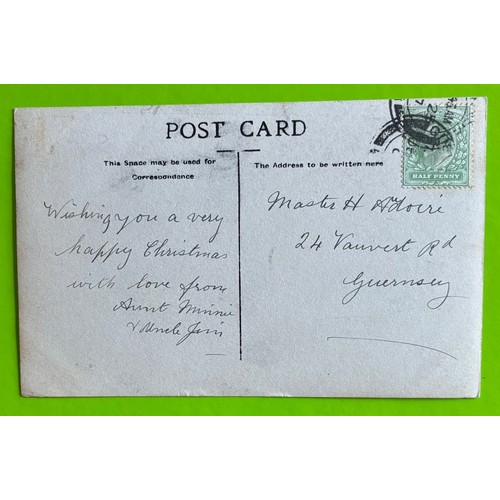 POST CARD
This Space may be used for
Correspondence
The Address to be written here
Wishing you a very
happy Christmas
with love from
Aunt Minnie
& Uncle Jim
Master H
24 Vauvert Rd
Guernsey
HALF PENNY